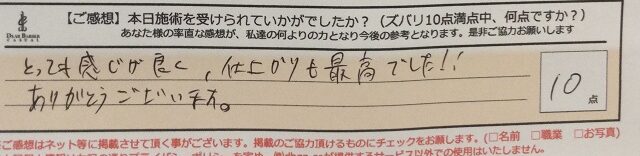 【ご感想】本日施術を受けられていかがでしたか？（ズバリ10点満点中、何点ですか？）
DEAR BARBER
CASUAL
あなた様の率直な感想が、私達の何よりの力となり今後の参考となります。是非ご協力お願いします
とっても感じが良く、仕上がりも最高でした!!
ありがとうございます。
10点
ご感想はネット等に掲載させて頂く事がございます。掲載のご協力頂けるものにチェックをお願いします。(□名前 □職業 □お写真)
するサービス以外での使用はいたしません。